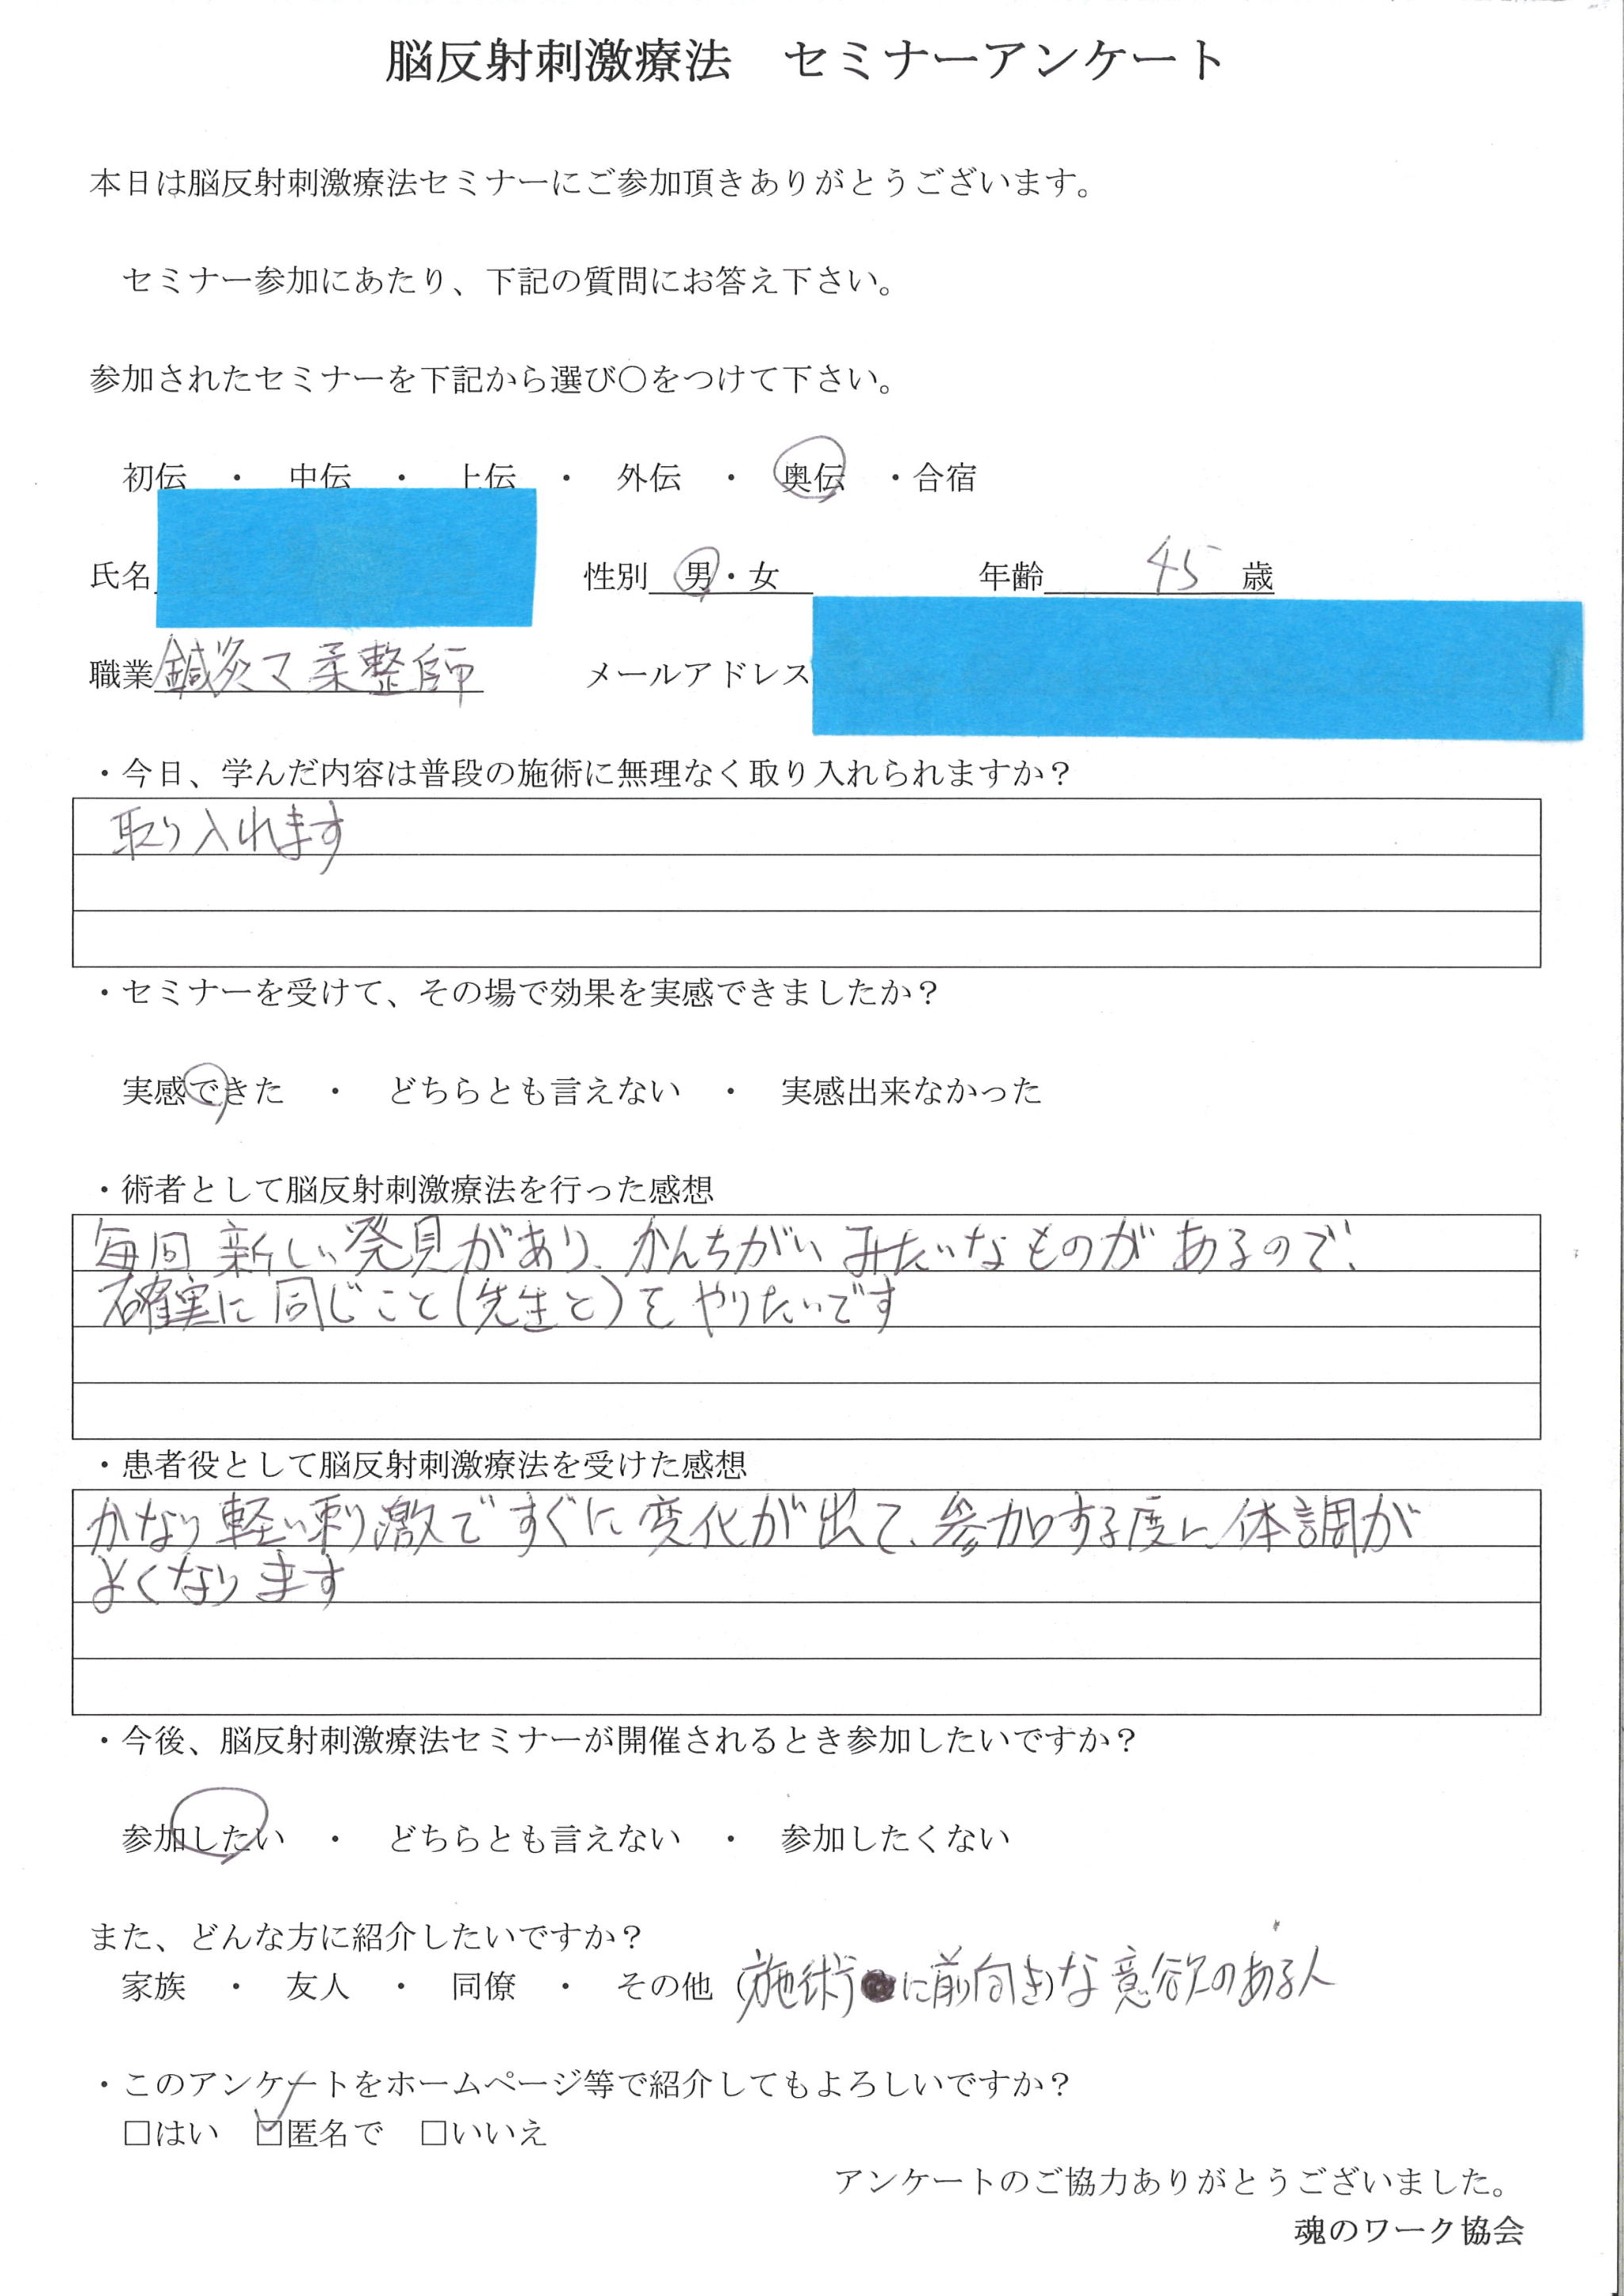 脳反射刺激療法　セミナーアンケート
本日は脳反射刺激療法セミナーにご参加頂きありがとうございます。
セミナー参加にあたり、下記の質問にお答え下さい。
参加されたセミナーを下記から選び○をつけて下さい。
初伝　・　中伝　・　上伝　・　外伝　・　奥伝　・合宿
氏名　性別　男・女　年齢　45　歳
職業 鍼灸マ柔整師　メールアドレス
・今日、学んだ内容は普段の施術に無理なく取り入れられますか？
取り入れます
・セミナーを受けて、その場で効果を実感できましたか？
実感できた　・　どちらとも言えない　・　実感出来なかった
・術者として脳反射刺激療法を行った感想
毎回 新しい発見があり、かんちがいみたいなものがあるので、
確実に同じこと(先生と)をやりたいです
・患者役として脳反射刺激療法を受けた感想
かなり軽い刺激ですぐに変化が出て、参加する度に体調が
よくなります
・今後、脳反射刺激療法セミナーが開催されるとき参加したいですか？
参加したい　・　どちらとも言えない　・　参加したくない
また、どんな方に紹介したいですか？
家族　・　友人　・　同僚　・　その他（施術に前向き）な意欲のある人
・このアンケートをホームページ等で紹介してもよろしいですか？
□はい　☑匿名で　□いいえ
アンケートのご協力ありがとうございました。
魂のワーク協会